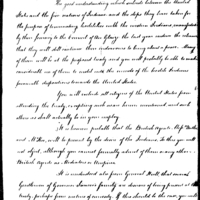 The good understanding which subsists between the United
States and the five nations of Indians and the steps they have taken for
the purpose of commencing negotiations with the western Indians,
by their journey to the council at Au Glaize the last year
that they will still continue their endeavours to bring about a peace. Many
of them will be at the proposed treaty and you will probably be able to make
considerable use of them to mould into the minds of the hostile Indians
favorable dispositions towards the United States.
You will exclude all citizens of the United States from
attending the treaty, excepting such as are herein mentioned and such
others as shall actually be in your employ.
It is however probable that the British agents Mr. Butler
and McKee, will be present by the desire of the Indians. To this you will
not object, although you cannot formally admit of them or any other
British Agents as Mediators or Umpires.
It is understood also from General Hull that
Gentlemen of Governor Simcoe's family are desirous of being present at the
treaty, perhaps from motives of curiosity. If this should be the case you will